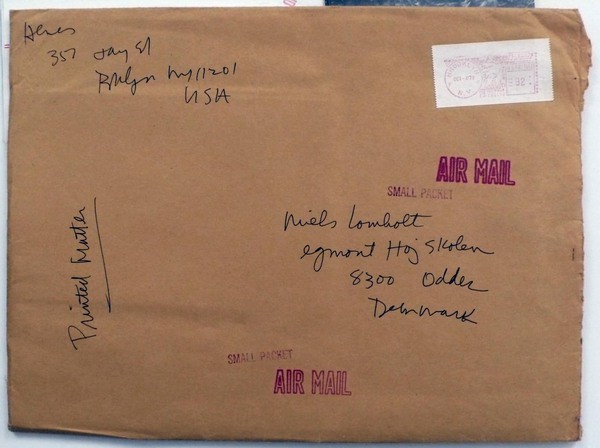 357 Jay St
Bklyn NY 11201
USA
AIR MAIL
SMALL PACKET
Niels Lomholt
Egmont Hoj Skolen
8300 Odder
Denmark
Printed Matter
SMALL PACKET
AIR MAIL